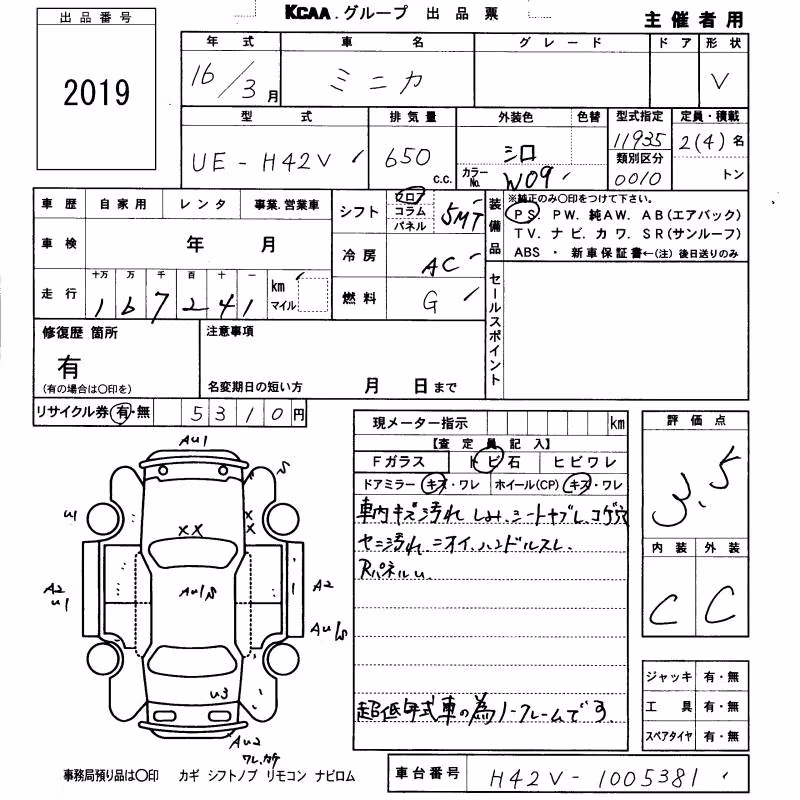 KCAA グループ 出品票
主催者用
出品番号
2019
年式 車名 グレード ドア 形状
16/3月 ミニカ V
型式 排気量 外装色 色替 型式指定 定員・積載
UE-H42V 650 c.c. シロ 11935 2(4)名
カラーNo. W09 類別区分 0010 トン
車歴 自家用 レンタ 事業.営業車
シフト フロア コラム パネル 5MT
装備品
※純正のみ〇印をつけて下さい。
PS. PW. 純AW. AB(エアバック)
TV. ナビ. カワ. SR(サンルーフ)
ABS ・ 新車保証書←(注)後日送りのみ
車検 年 月
冷房 AC
走行 十万 万 千 百 十 一
167241 km マイル
燃料 G
セールスポイント
修復歴 箇所
有
(有の場合は〇印を)
注意事項
名変期日の短い方 月 日まで
リサイクル券 有・無 5310円
現メーター指示 km
【査定員記入】
Fガラス トビ石 ヒビワレ
ドアミラー キズ・ワレ ホイール(CP) キズ・ワレ
車内キズ汚れ シミ、シートヤブレ、コゲ穴
ヤニ汚れ、ニオイ、ハンドルスレ、
Rパネルu、
超低年式車の為ノークレームです。
評価点
3.5
内装 外装
C C
ジャッキ 有・無
工具 有・無
スペアタイヤ 有・無
AU1
S
U1
XX
X
X
A2
U1
AU1S
A2
AU1S
U3
AU2
ワレ、カケ
事務局預り品は〇印 カギ シフトノブ リモコン ナビロム
車台番号 H42V-1005381